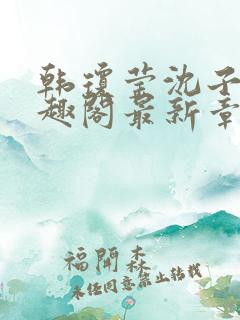 韩琼莹沈子
趣阁最新章
福開森
未经同意禁止转载